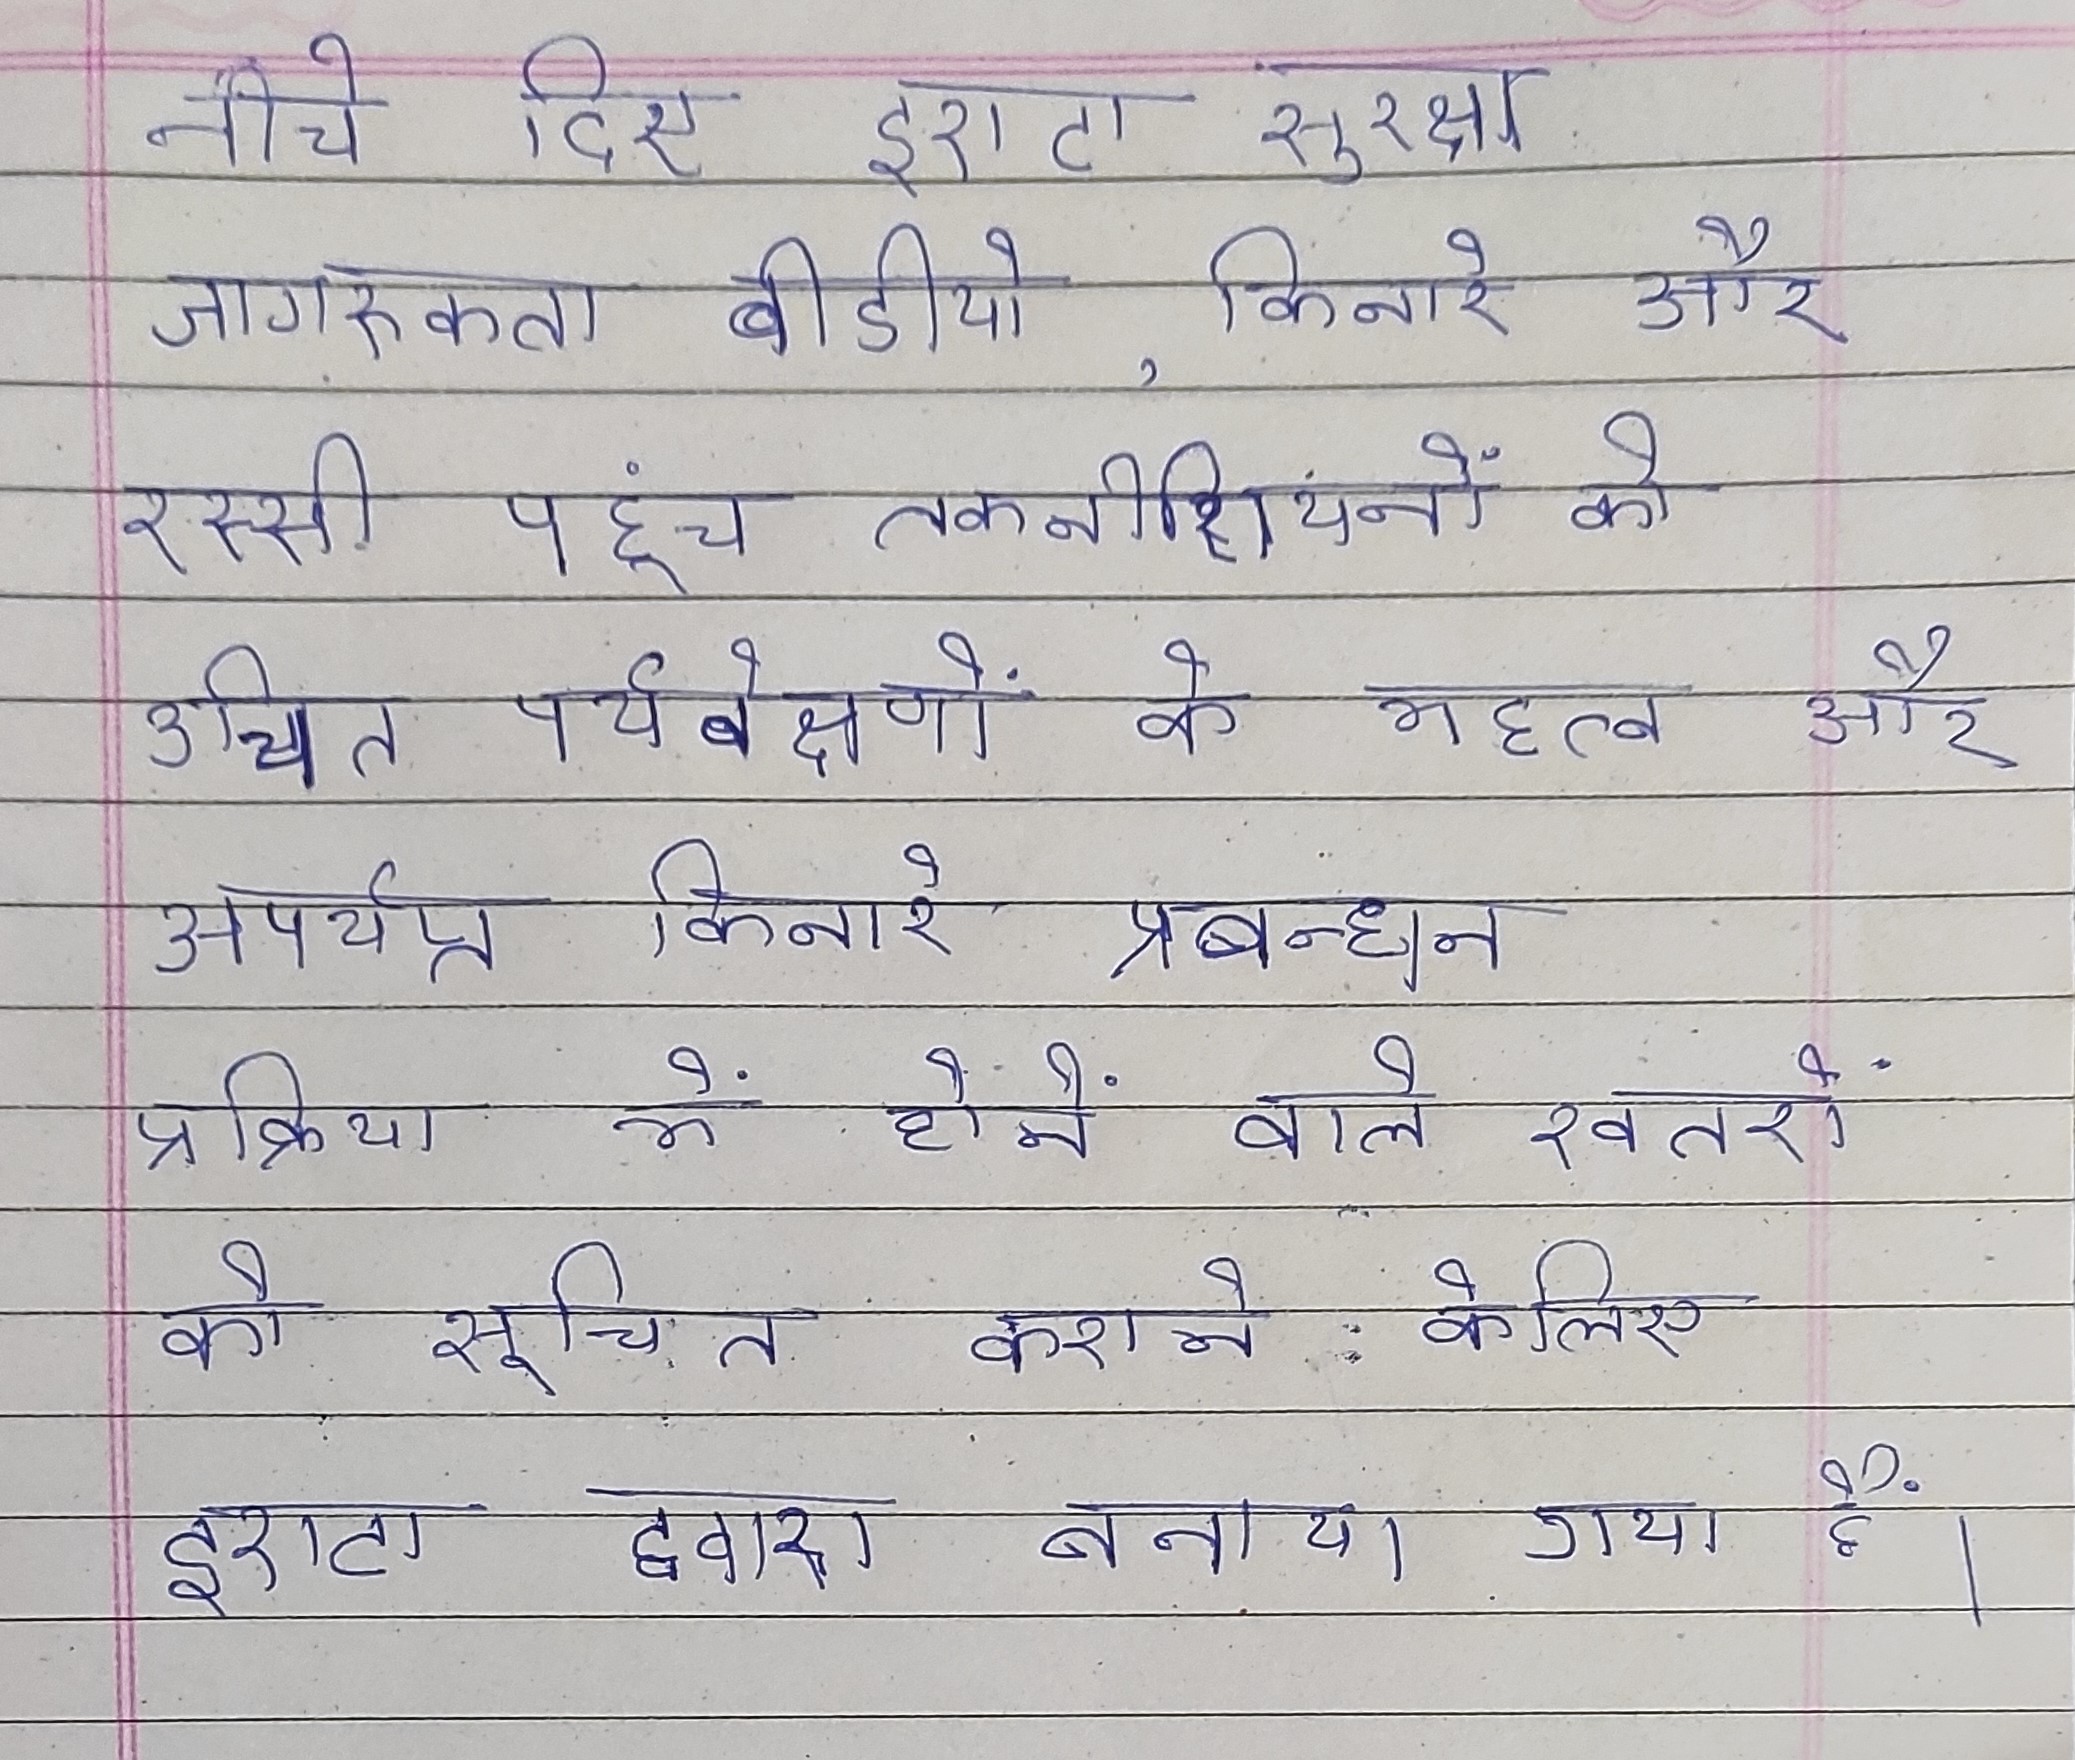 नीचे दिए इराटा सुरक्षा
जागरुकता बीडीयो, किनारे और
रस्सी पहूंच तकनीशियनों को
उचित पर्यवेक्षणों के महत्व और
अपर्यप्त किनारे प्रबन्धन
प्रक्रिया में होनें वाले खतरों
को सूचित कराने केलिए
इराटा द्वारा बनाया गया हैं।